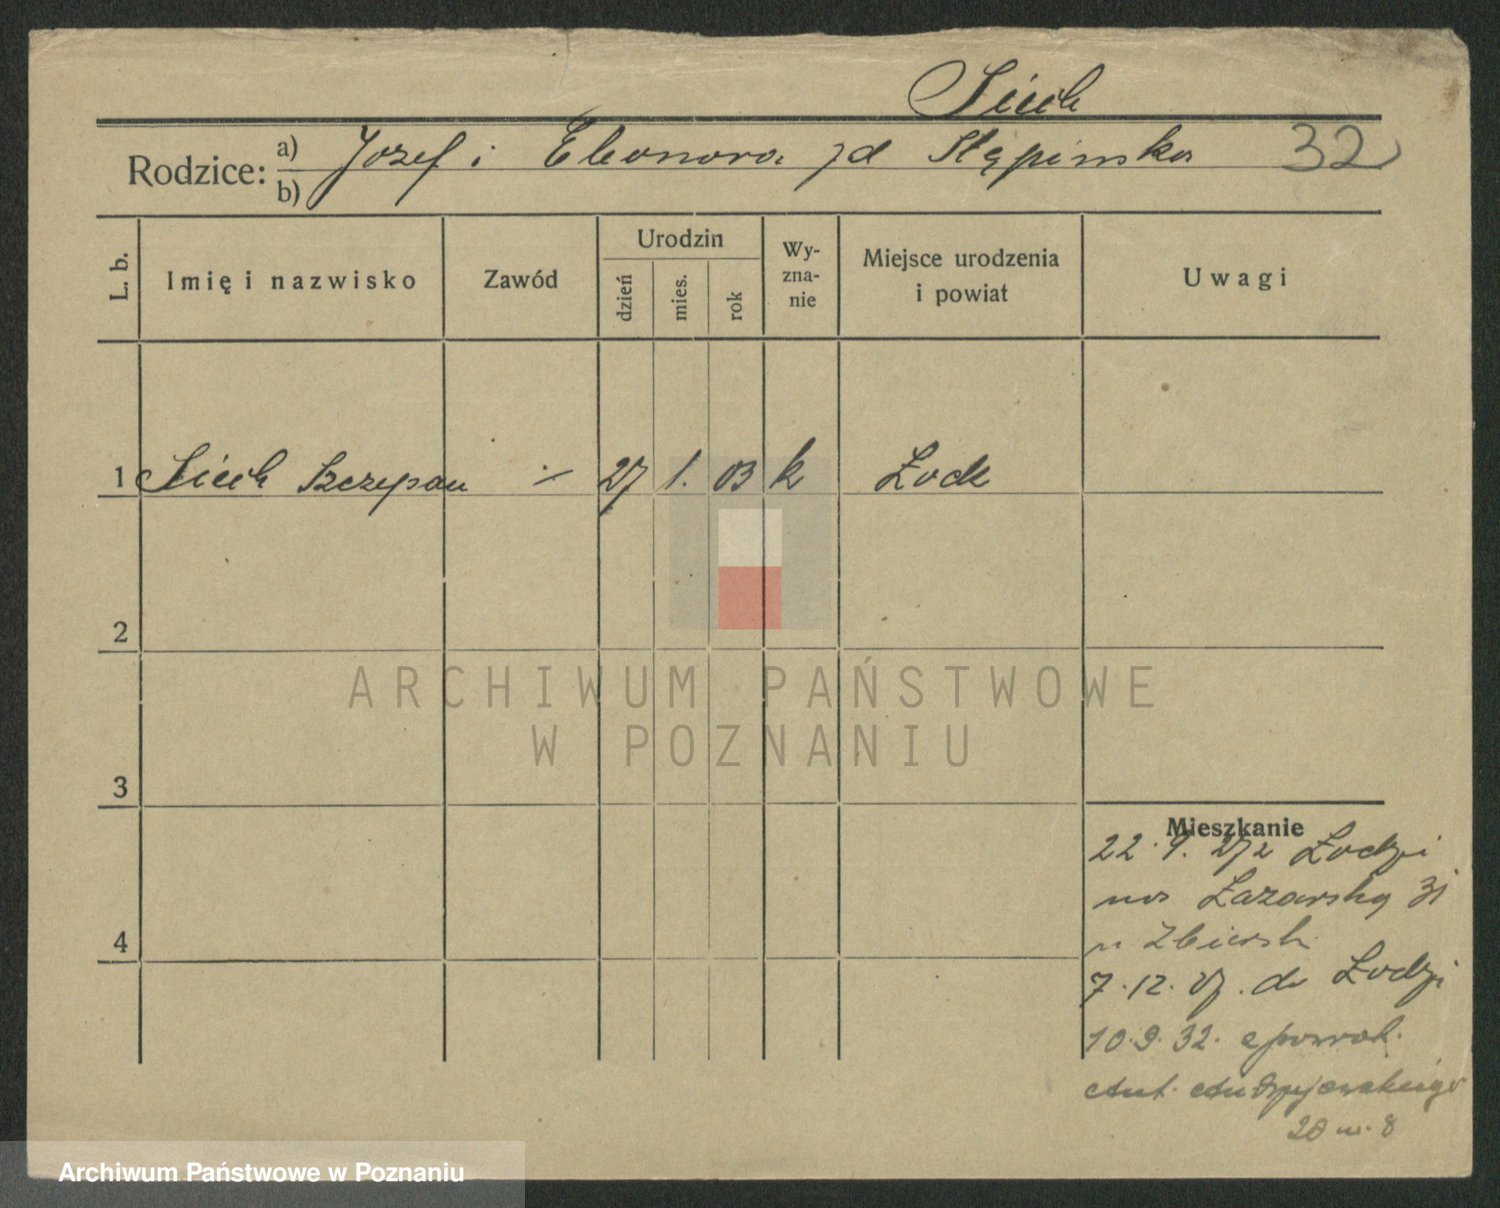 Siech
Rodzice: a) Jozef i Eleonora zd Stępinska 32
b)
L. b. Imię i nazwisko Zawód Urodzin dzień mies. rok Wy-zna-nie Miejsce urodzenia i powiat Uwagi
1 Siech Szczepan ./. 27 1. 03 k Łodz
2
ARCHIWUM PAŃSTWOWE
W POZNANIU
3
Mieszkanie
22. 9. 27 z Łodzi
na Łazarską 31
4
u Zbierski
7. 12. 27. do Łodzi
10. 9. 32. z powrot.
Ant. Andrzejewskiego
20 m. 8
Archiwum Państwowe w Poznaniu